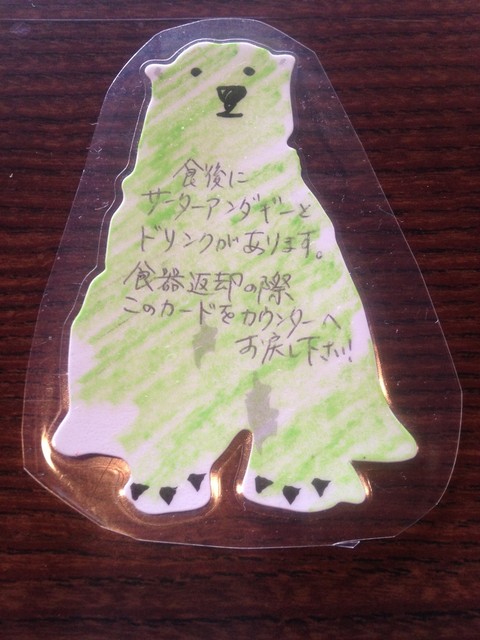 食後に
サーターアンダギーと
ドリンクがあります。
食器返却の際
このカードをカウンターへ
お戻し下さい!